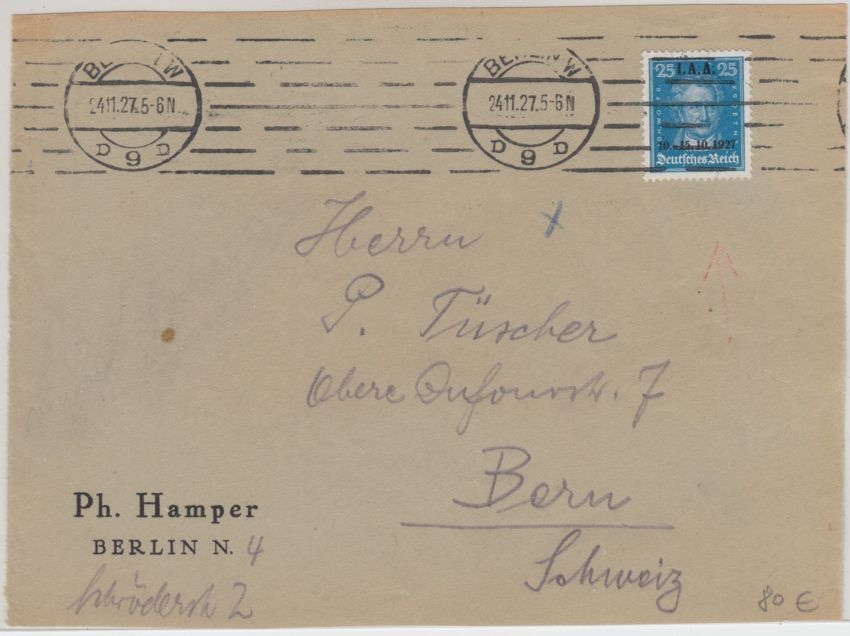 BERLIN W
24.11.27.5-6N
D 9 D
BERLIN W
24.11.27.5-6N
D 9 D
25 I.A.A. 25
10.-15.10.1927
Deutsches Reich
Herrn
P. Tüscher
Obere Dufourstr. 7
Bern
Schweiz
Ph. Hamper
BERLIN N. 4
Schröderstr 2
80 €